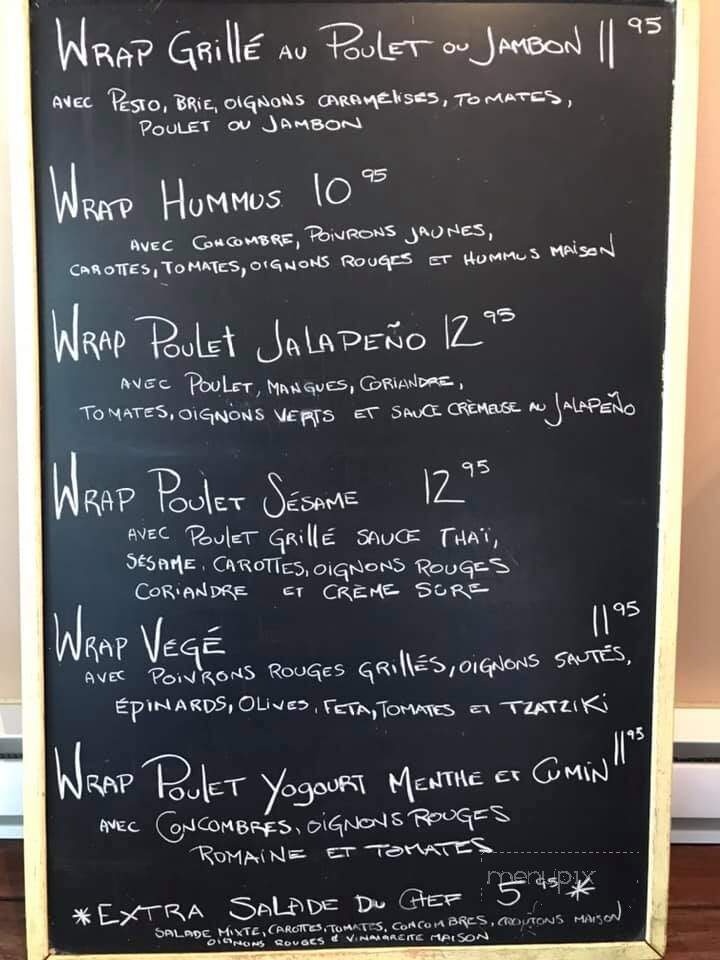 Wrap Grillé au Poulet ou Jambon 11 95
avec Pesto, Brie, oignons caramélisés, tomates,
Poulet ou Jambon
Wrap Hummus 10 95
avec Concombre, Poivrons jaunes,
carottes, tomates, oignons rouges et hummus maison
Wrap Poulet Jalapeño 12 95
avec Poulet, mangues, Coriandre,
tomates, oignons verts et sauce crèmeuse au Jalapeño
Wrap Poulet Sésame 12 95
avec Poulet Grillé sauce Thaï,
sésame, carottes, oignons rouges
coriandre et crème sure
Wrap Végé 11 95
avec Poivrons rouges grillés, oignons sautés,
épinards, olives, feta, tomates et tzatziki
Wrap Poulet Yogourt Menthe et Cumin 11 95
avec Concombres, oignons rouges
romaine et tomates
menupix
*Extra Salade du Chef 5 95 *
salade mixte, carottes, tomates, concombres, croutons maison
oignons rouges & vinaigrette maison